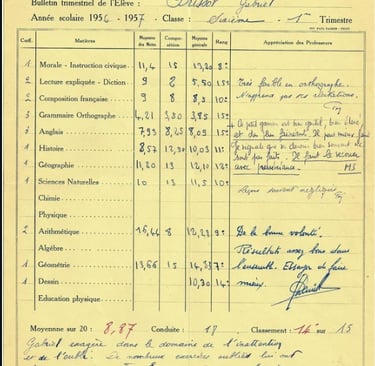 Bulletin trimestriel de l'Élève : Brissot Gabriel
Année scolaire 1956 - 1957 - Classe : Sixième - 1er Trimestre
Coef. Matières Moyenne des Notes Composition Moyenne générale Rang Appréciation des Professeurs
1 Morale - Instruction civique 11,4 15 13,20 8e
2 Lecture expliquée - Diction 9 2 5,50 15e Très faible en orthographe.
2 Composition française 9 8 8,5 10e N'apprend pas ses récitations.
3 Grammaire Orthographe 4,21 3,50 3,85 15e Ce petit garçon est bien gentil, bien élevé,
3 Anglais 7,93 8,25 8,09 15e et du bon
1 Histoire 8,57 10,03 11e Je signale que les devoirs bien souvent ne
1 Géographie 11,20 13 12,10 12e sont pas faits. Il faut le secouer
avec persévérance. MS
1 Sciences Naturelles 10 13 11,5 10e Leçons souvent négligées
Chimie
Physique
2 Arithmétique 16,44 8 12,23 9e De la bonne volonté.
Algèbre Résultats assez bons dans
1 Géométrie 13,66 15 14,33 7e l'ensemble. Essayer de faire
1 Dessin 10,30 14e mieux.
Education physique
Moyenne sur 20 : 8,87 Conduite : 18 Classement : 14e sur 15
Gabriel exagère dans le domaine de l'inattention
et de l'oubli. De nombreux exercices oubliés lui ont